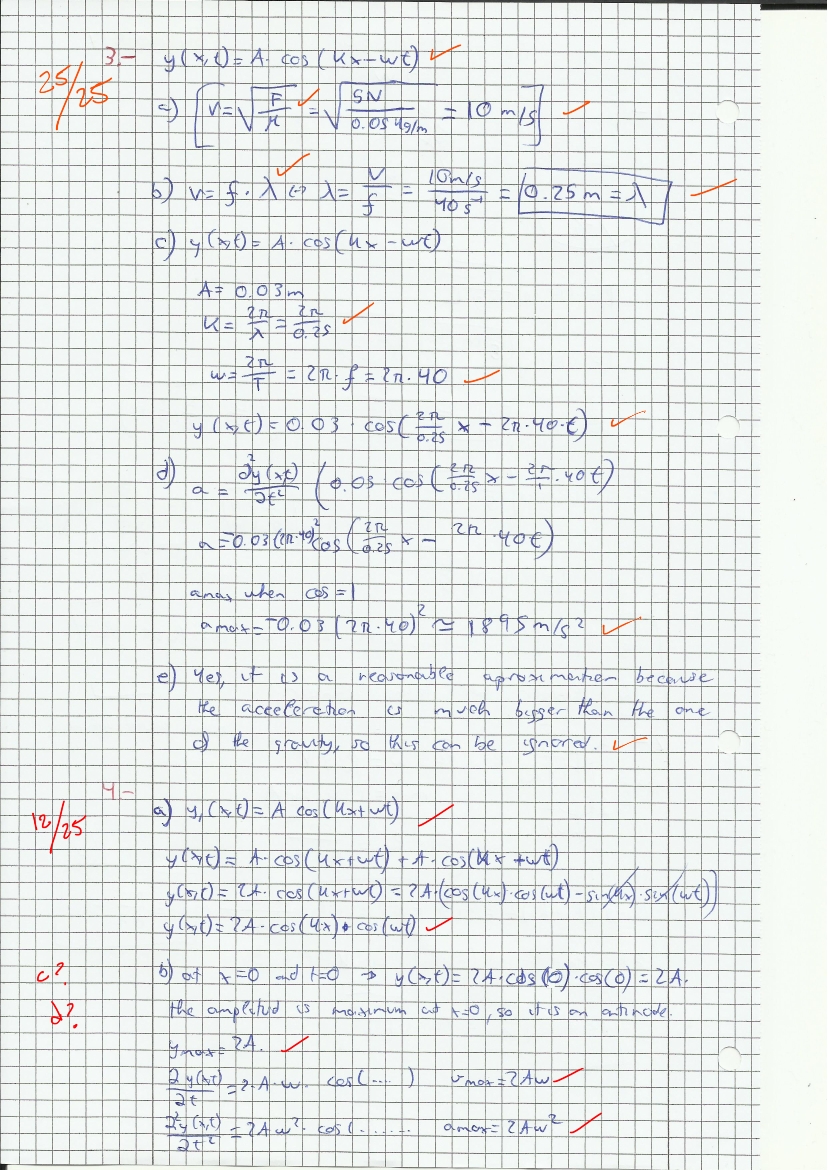 3.- y(x,t) = A · cos(kx-wt)
25/25
a) [v = √(F/μ) = √(5N/0.05 kg/m) = 10 m/s]
b) v = f · λ ⇔ λ = v/f = 10m/s / 40 s⁻¹ = 0.25 m = λ
c) y(x,t) = A · cos(kx - wt)
A = 0.03 m
K = 2π/λ = 2π/0.25
w = 2π/T = 2π · f = 2π · 40
y(x,t) = 0.03 · cos(2π/0.25 x - 2π·40·t)
d) a = ∂²y(x,t)/∂t² (0.03 cos(2π/0.25 x - 2π/1 · 40t)
a = -0.03 (2π·40)² cos(2π/0.25 x - 2π · 40t)
amax when cos = 1
amax = -0.03 (2π·40)² ≅ 1895 m/s²
e) Yes, it is a reasonable aproximation because
the acceleration is much bigger than the one
of the gravity, so this can be ignored.
4.-
12/25
a) y₁(x,t) = A cos(kx+wt)
y(x,t) = A·cos(kx+wt) + A·cos(kx+wt)
y(x,t) = 2A · cos(kx+wt) = 2A·(cos(kx)·cos(wt) - sin(kx)·sin(wt))
y(x,t) = 2A·cos(kx)·cos(wt)
c?
b) at x=0 and t=0 → y(x,t) = 2A·cos(0)·cos(0) = 2A.
d?
the amplitud is maximum at x=0, so it is an antinode.
ymax = 2A.
∂y(x,t)/∂t = 2·A·w · cos(....) vmax = 2Aw
∂²y(x,t)/∂t² = 2Aw² · cos(....... amax = 2Aw²